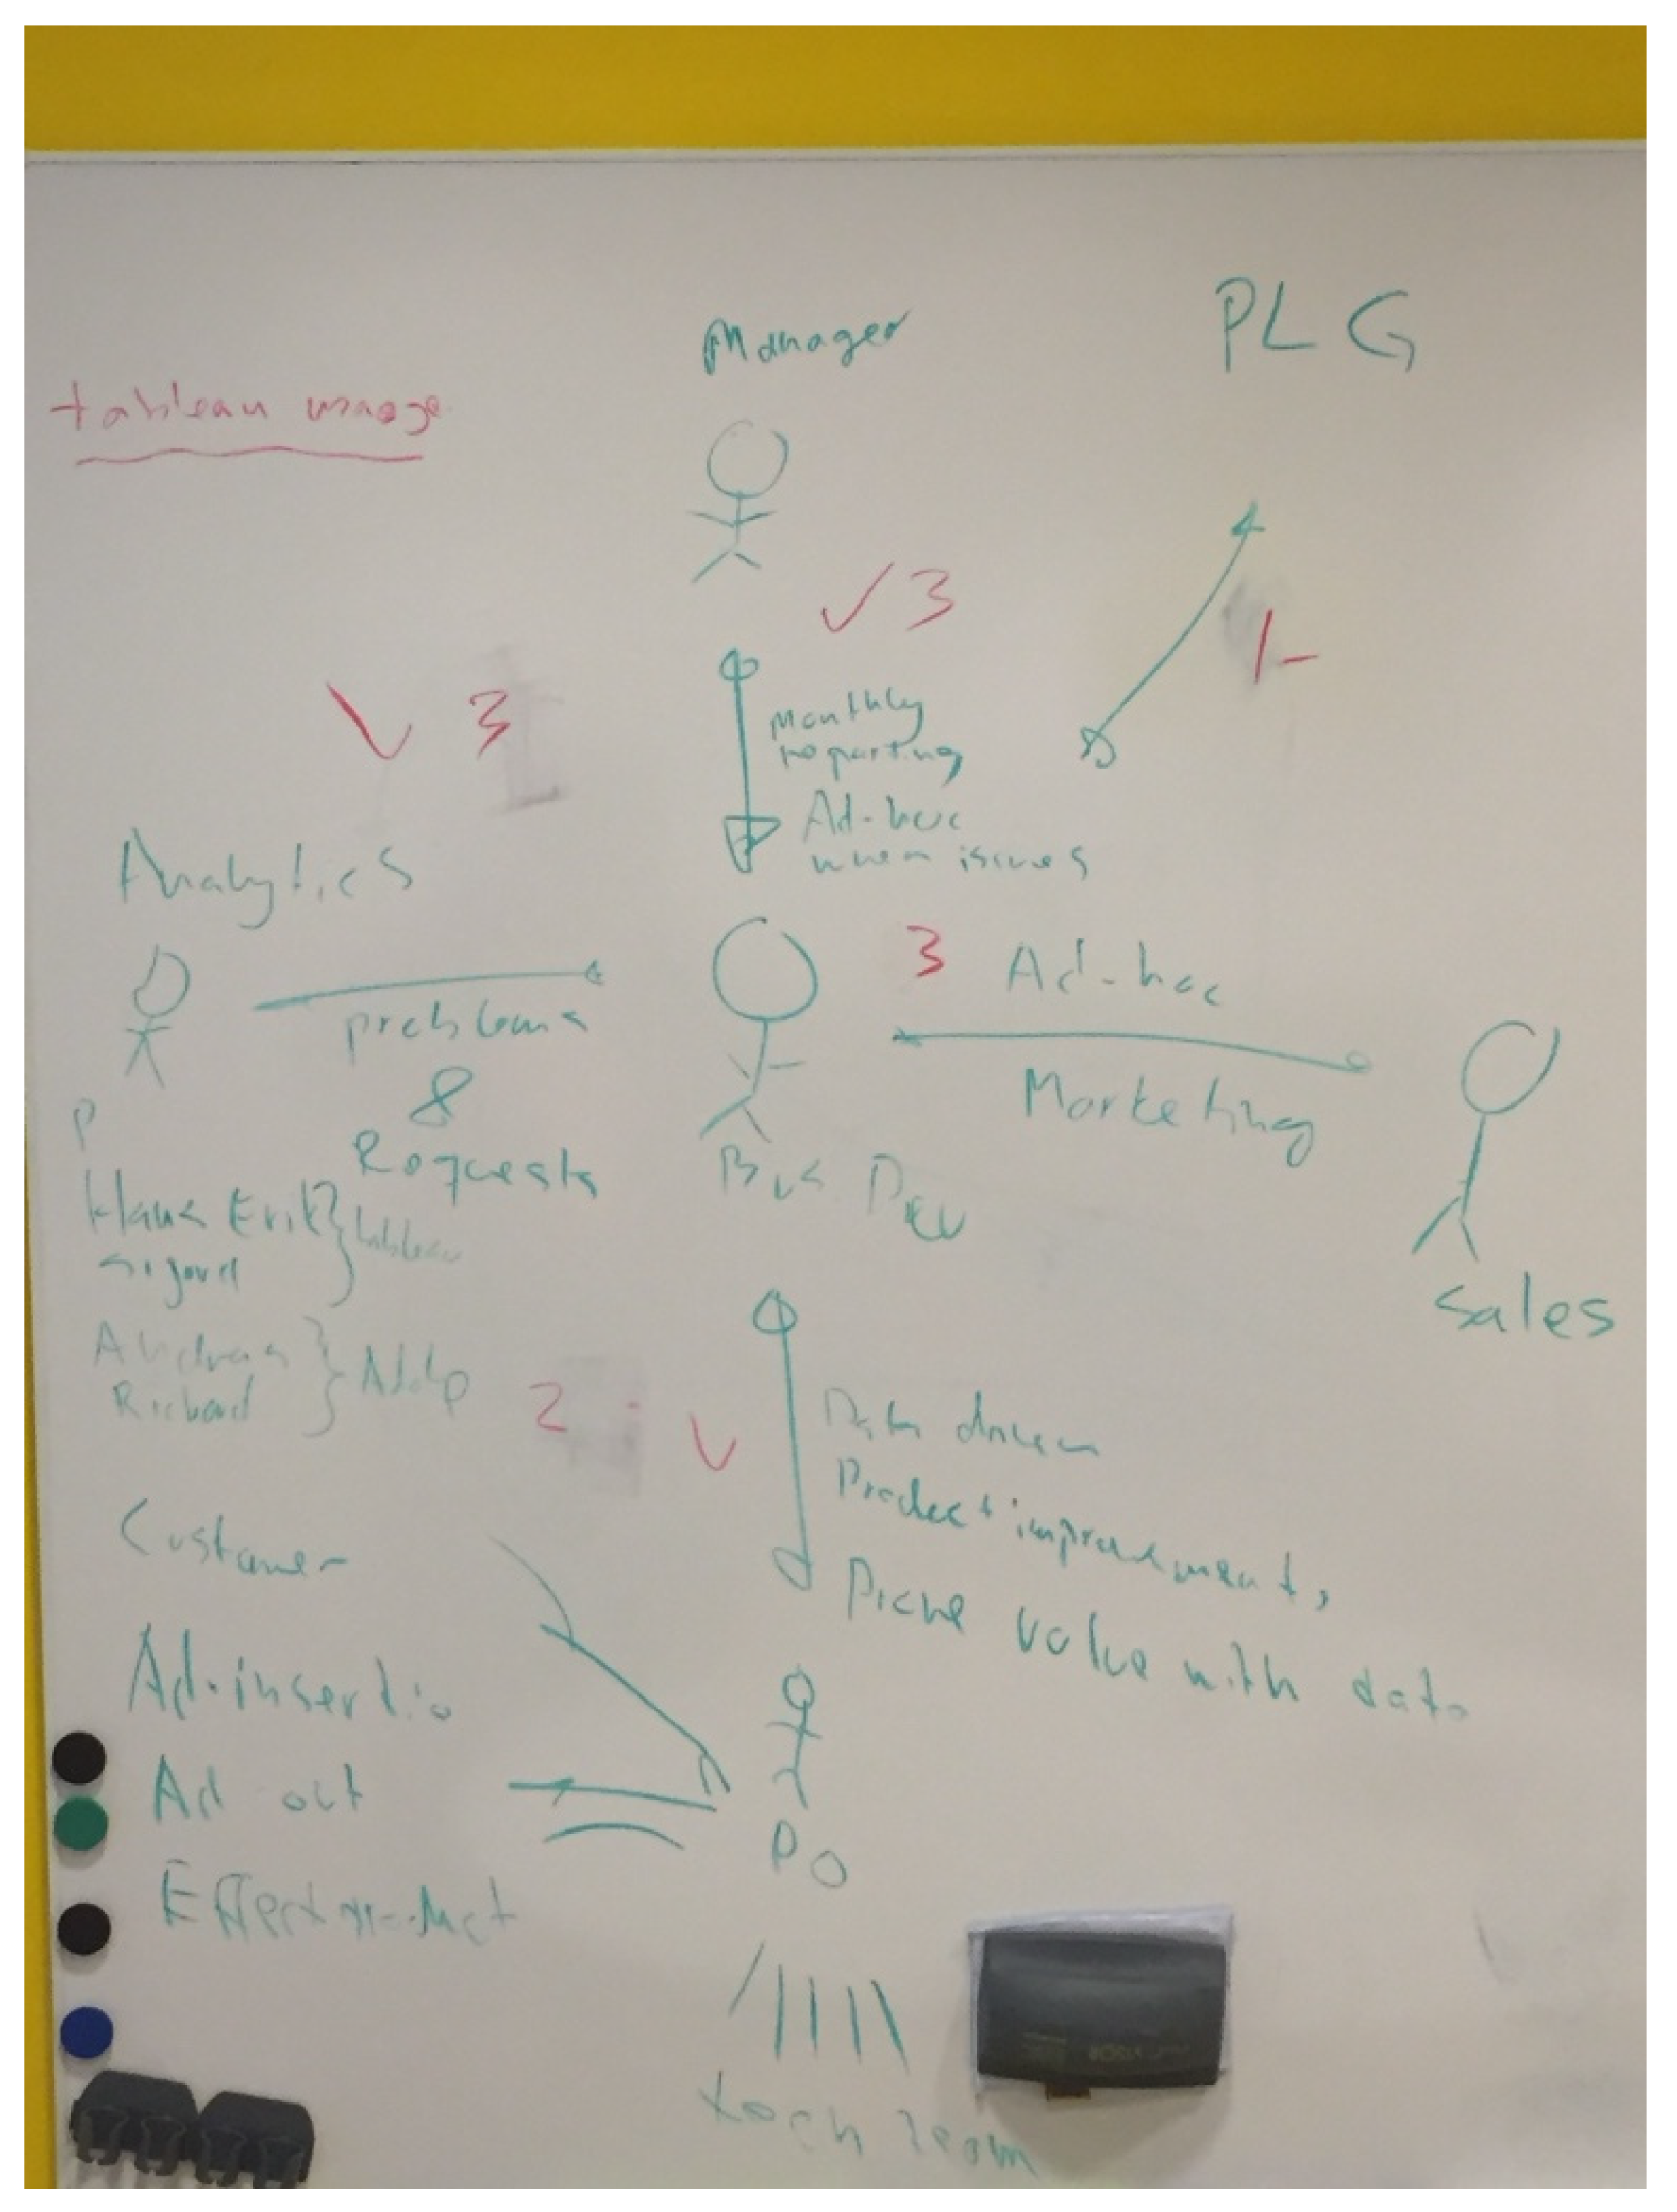 Manager
PLG
tableau usage
✓ 3
1-
✓ 3
Monthly
reporting
Ad-hoc
when issues
Analytics
3 Ad-hoc
problems
&
Requests
Marketing
P
Bus Dev
Hans Erik } tableau
Sigurd
Sales
Andreas } 
Richard
2 ✓
Data driven
Product improvement,
value with data
Customer
Ad-insertio
Ad out
PO
Effect product
tech team